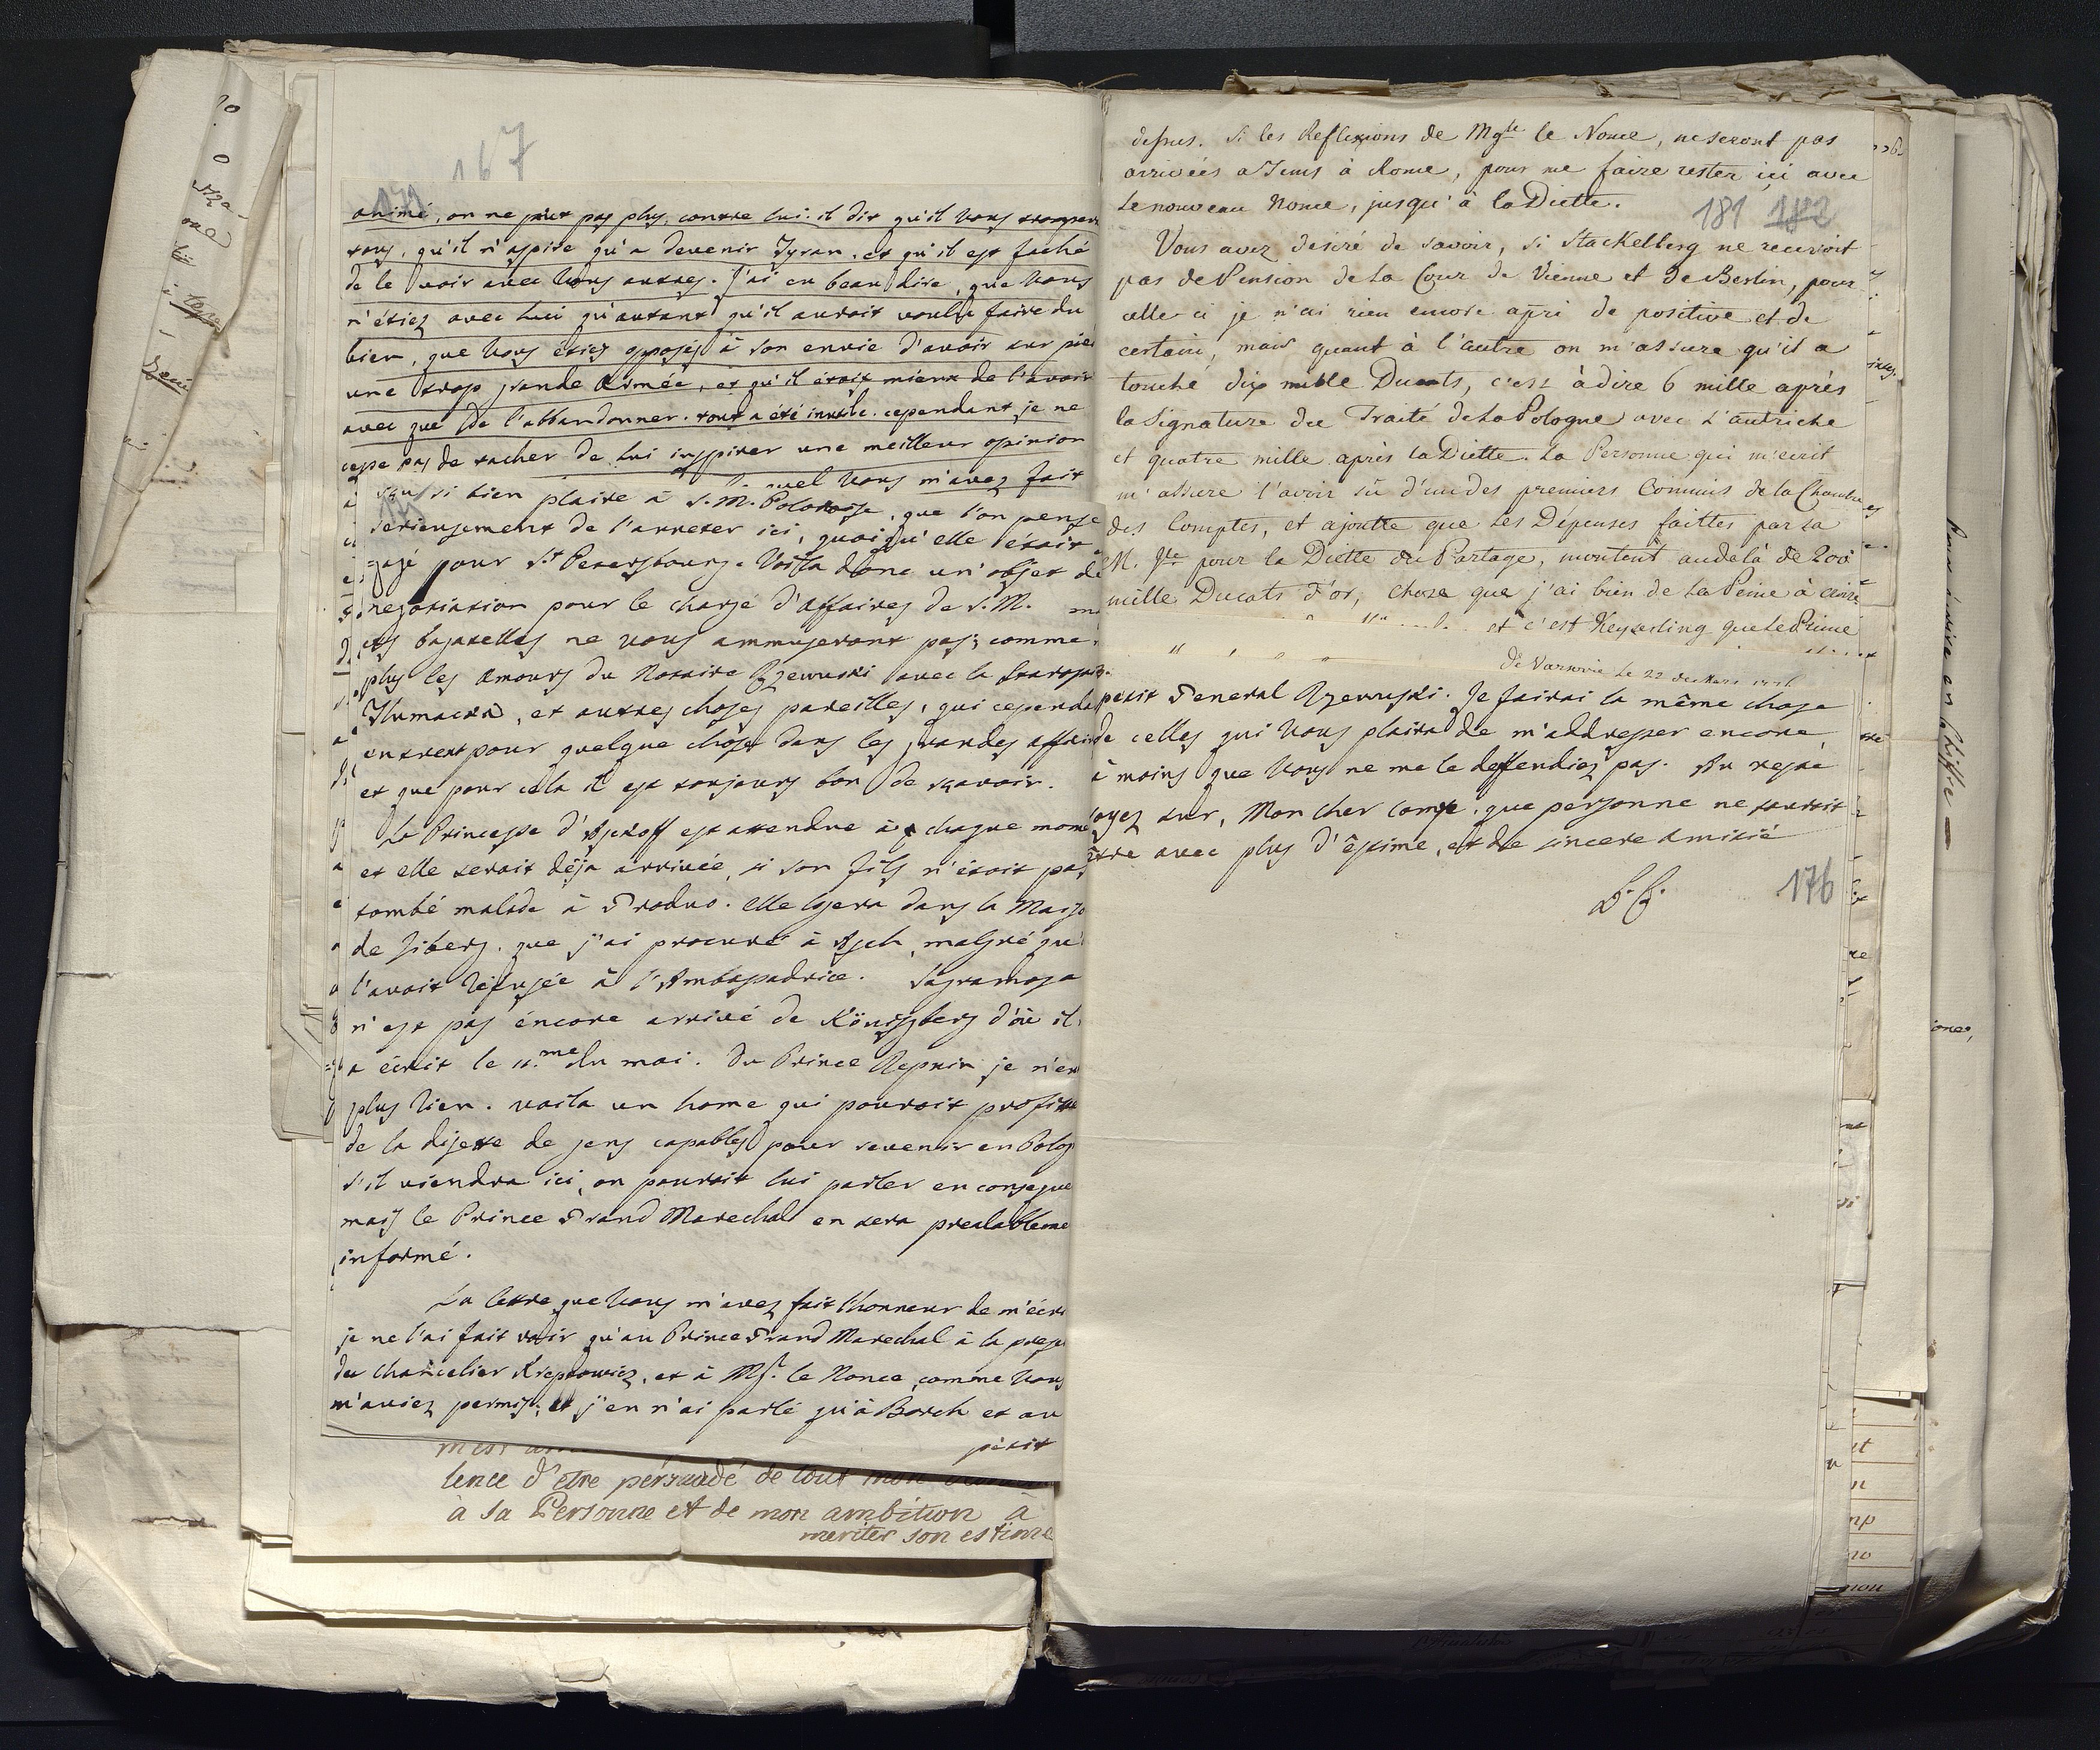 167
animé, on ne peut pas plus, contre lui. il dit qu'il vous trompera
tous, qu'il n'aspire qu'a devenir Tyran, et qu'il est faché
de le voir avec vous autres. J'ai eu beau dire, que vous
n'étiez avec lui qu'autant qu'il auroit voulu faire du
bien, que vous étiez opposés à son envie d'avoir sur pied
une trop grande Armée, et qu'il étoit mieux de l'avoir
avec que de l'abbandonner. tout a été inutile. cependant je ne
cesse pas de tacher de lui inspirer une meilleur opinion
quel vous m'avez fait
si bien plaire à S. M. Polonoise, que l'on pense
serieusement de l'arreter ici, quoiqu'elle étoit
gagé pour St Petersbourg. Voila donc un'objet de
negotiation pour le chargé d'Affaires de S. M.
bagatelles ne vous ammuseront pas; comme
plus les Amours du Notaire Rzewuski avec la
Tlumacka, et autres choses pareilles, qui cependa
entrent pour quelque chose dans les grandes affair
et que pour cela il est toujours bon de sçavoir.
La Princesse d'Askoff est attendue à chaque mome
et elle seroit déja arrivée, si son fils n'étoit pas
tombé malade à Grodno. elle logera dans la Maiso
de Siberg. que j'ai procuré à Asch, malgré qu'
l'avoit refusée à l'Ambassadrice. Sagramoso
n'est pas éncore arrivé de Königsberg d'où il
a écrit le 11.me du moi. Du Prince Repnin je n'en
plus rien. voila un home qui pouroit profitter
de la disette de gens capables pour revenir en Polog
s'il viendra ici, on pouroit lui parler en conseque
mais le Prince Grand Marechal en sera prealableme
informé.
La lettre que vous m'avez fait l'honneur de m'écri
je ne l'ai fait voir qu'au Prince Grand Marechal à la prese
du Chancelier Kreptowicz, et à Mgr. le Nonce, comme vous
m'aviez permis; et j'en n'ai parlé qu'à Borch et au
petit
lence d'etre persuadé de tout mon
à sa Personne et de mon ambition à
meriter son estime
dessus. Si les Reflexions de Mgr le Nonce, ne seront pas
arrivées a Tems à Rome, pour me faire rester ici avec
le nouveau Nonce, jusqu'à la Diette.
181 182
Vous avez desiré de savoir, si Stackelberg ne recevoit
pas de Pension de la Cour de Vienne et de Berlin, pour
celle ci je n'ai rien encore apri de positive et de
certain, mais quant à l'autre on m'assure qu'il a
touché dix mille Ducats, c'est à dire 6 mille après
la Signature du Traité de la Pologne avec l'autriche
et quatre mille après la Diette. La Personne qui m'ecrit
m'assure l'avoir sû d'un des premiers Commis de la Chambre
des Comptes, et ajoutte que les Dépenses faittes par sa
M. pour la Diette du Partage, montent audelà de 200
mille Ducats d'or, chose que j'ai bien de la Peine à croire
et c'est Keyserling que le Prime
de Varsovie le 22 de Mars
petit General Rzewuski. Je fairai la même chose
de celles qui vous plaira de m'addresser encore,
à moins que vous ne me le deffendiez pas. Au reste
soyez sur, Mon cher Comte, que personne ne sauroit
être avec plus d'éstime, et de sincere Amitié
176